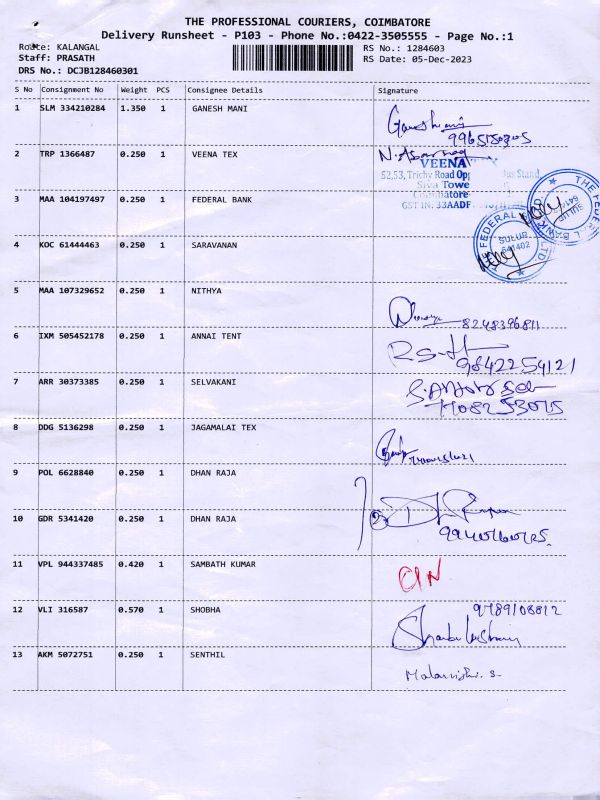 THE PROFESSIONAL COURIERS, COIMBATORE
Delivery Runsheet - P103 - Phone No.:0422-3505555 - Page No.:1
Route: KALANGAL RS No.: 1284603
Staff: PRASATH RS Date: 05-Dec-2023
DRS No.: DCJB128460301
S No Consignment No Weight PCS Consignee Details Signature
1 SLM 334210284 1.350 1 GANESH MANI
9965150305
2 TRP 1366487 0.250 1 VEENA TEX
VEENA
52,53, Trichy Road Opp Bus Stand,
Siva Towe
Coimbatore
GST IN: 33AADF
3 MAA 104197497 0.250 1 FEDERAL BANK
THE FEDERAL BANK LTD
SULUR
641402
THE FEDERAL BANK LTD
SULUR
4 KOC 61444463 0.250 1 SARAVANAN
5 MAA 107329652 0.250 1 NITHYA
8248396811
6 IXM 505452178 0.250 1 ANNAI TENT
9842254121
7 ARR 30373385 0.250 1 SELVAKANI
8 DDG 5136298 0.250 1 JAGAMALAI TEX
9 POL 6628840 0.250 1 DHAN RAJA
10 GDR 5341420 0.250 1 DHAN RAJA
11 VPL 944337485 0.420 1 SAMBATH KUMAR
12 VLI 316587 0.570 1 SHOBHA
9789108812
13 AKM 5072751 0.250 1 SENTHIL